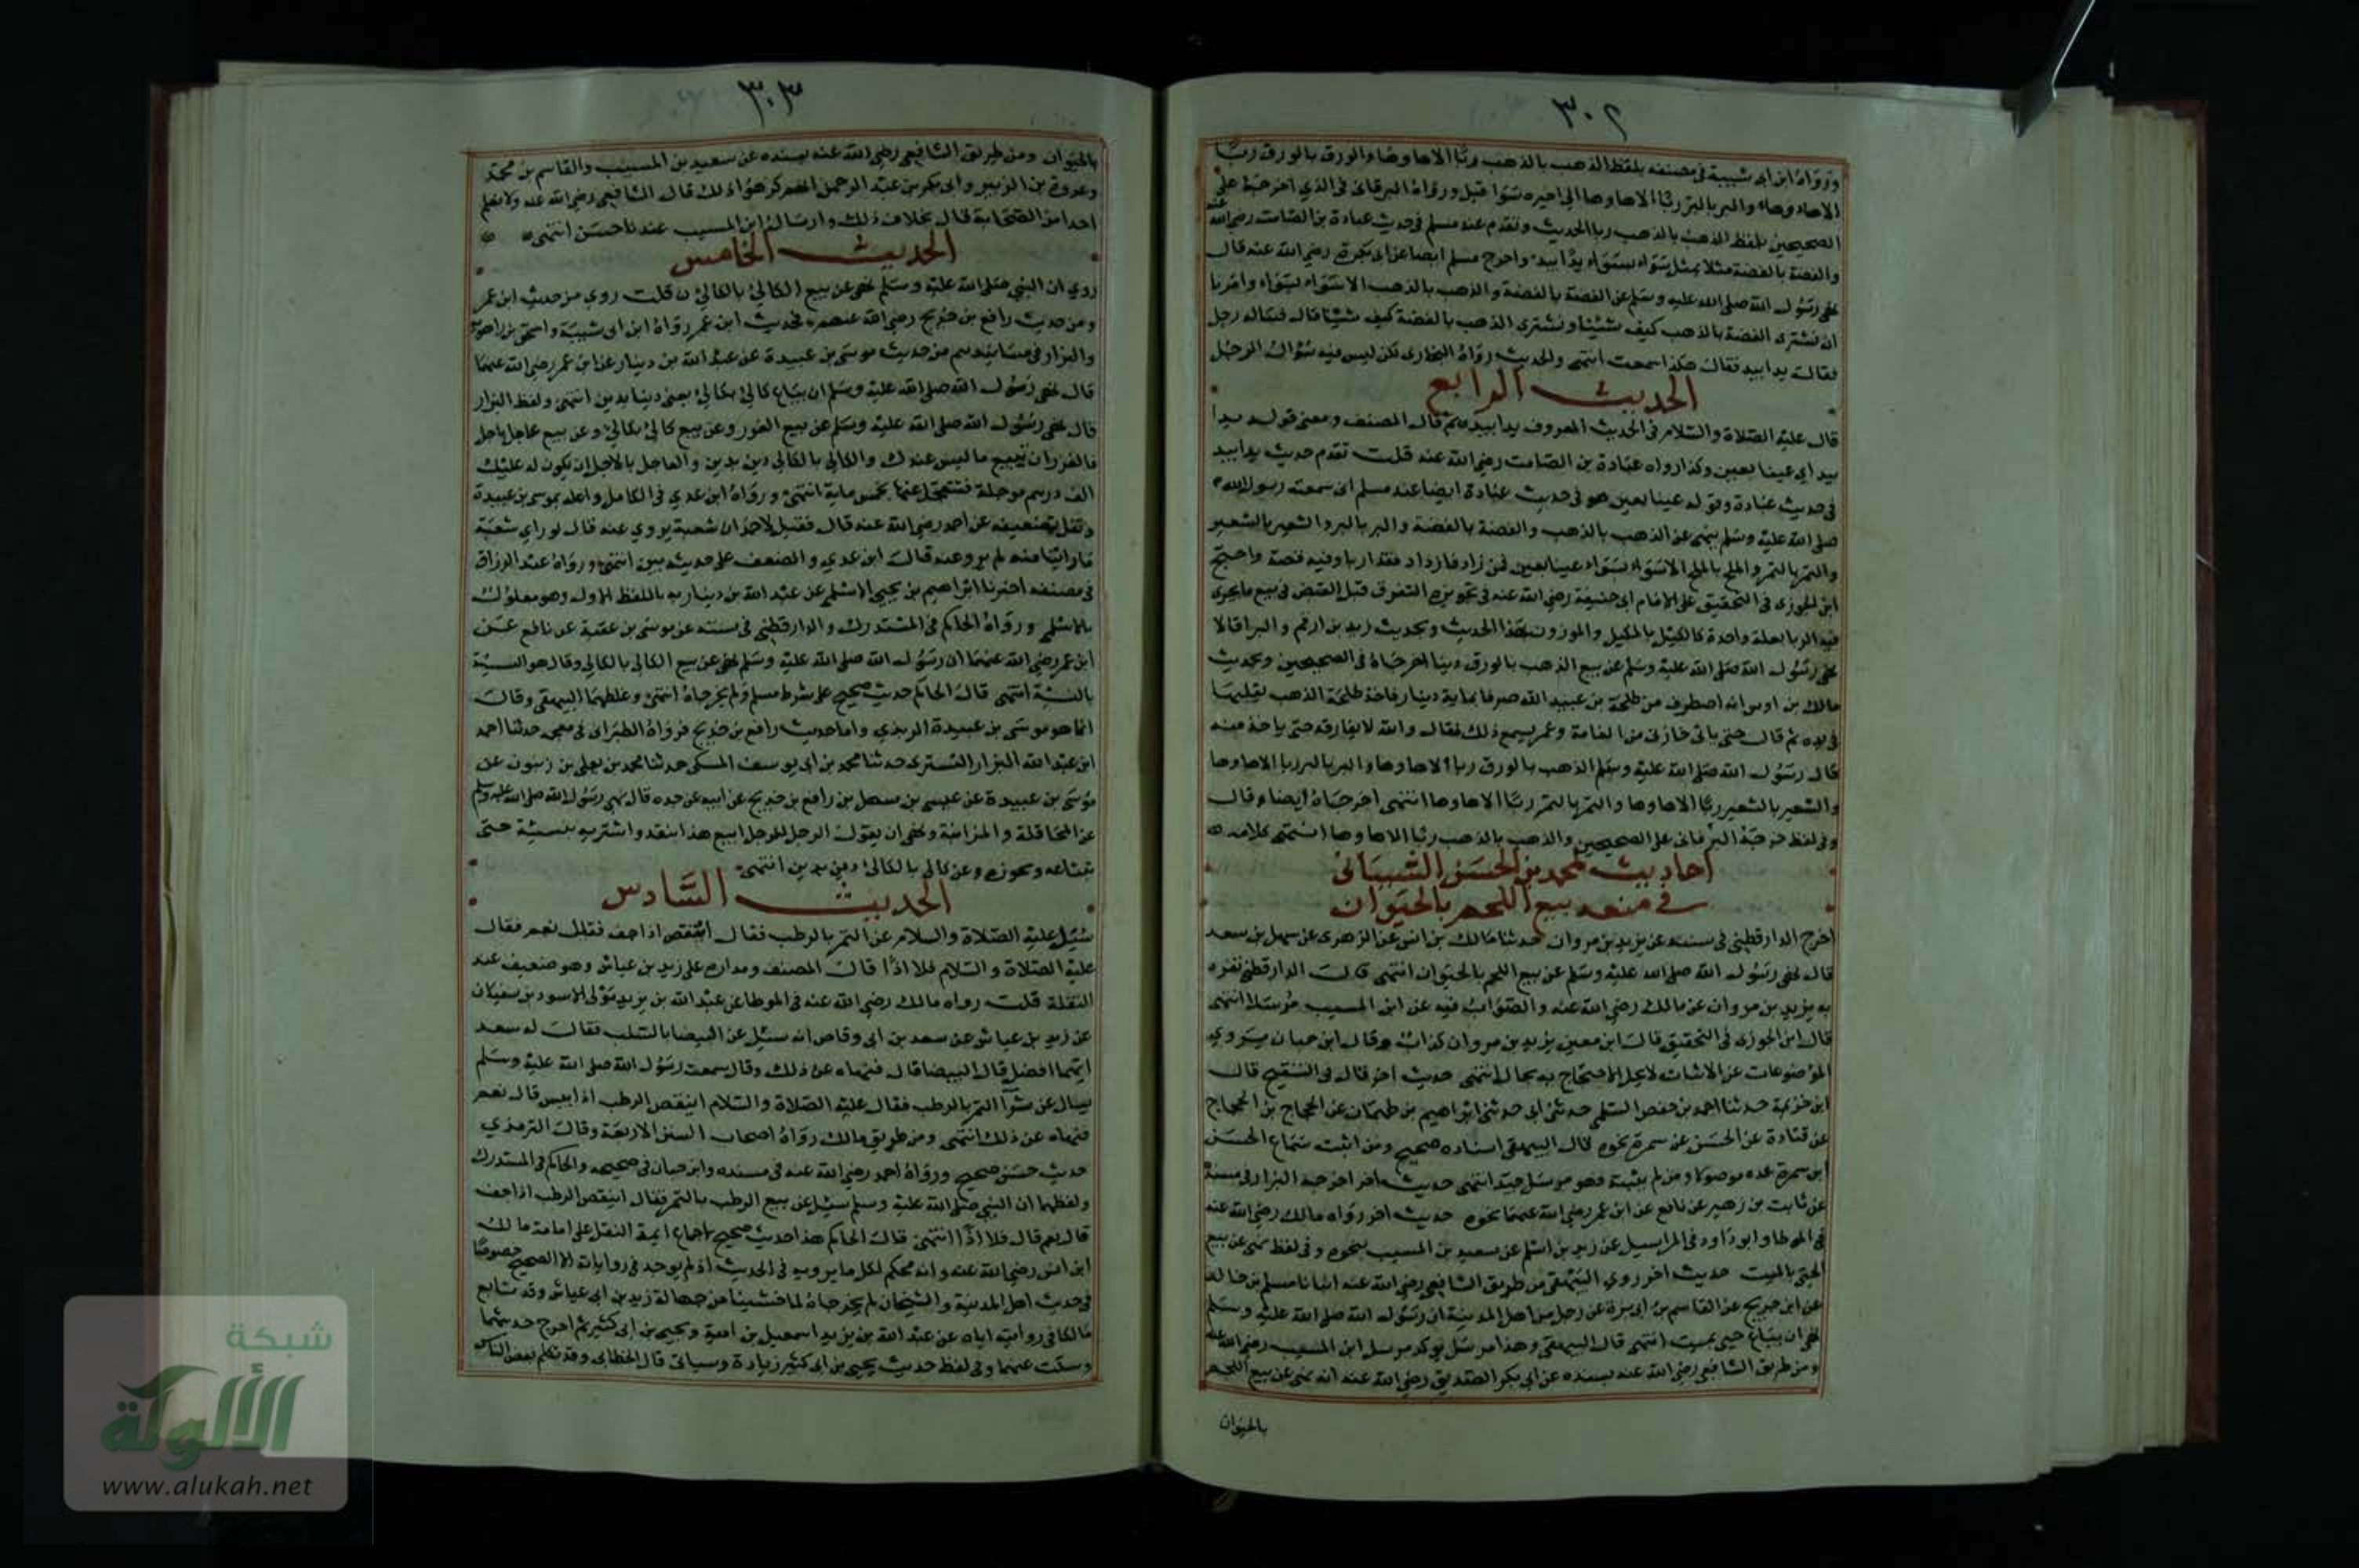 ٣٠٢
ورواه ابن ابى شيبة فى مصنفه بلفظ الذهب بالذهب ربا الا ها وها والورق بالورق ربا
الا ها وها والبر بالبر ربا الا ها وها الى اخيره سوا قبل ورواه البرقانى فى الذي اخرجه على
الصحيحين بلفظ الذهب بالذهب ربا الحديث وتقدم عند مسلم فى حديث عبادة بن الصامت رضى الله عنه
والفضة بالفضة مثلا بمثل سواء بسواء يدا بيد واخرج مسلم ايضا عن ابى بكرة رضي الله عنه قال
نهى رسول الله صلى الله عليه وسلم عن الفضة بالفضة والذهب بالذهب الا سواء بسواء وامرنا
ان نشترى الفضة بالذهب كيف شئنا ونشترى الذهب بالفضة كيف شئنا قال فساله رجل
فقال يدا بيد فقال هكذا سمعت انتهى والحديث رواه البخارى لكن ليس فيه سؤال الرجل
الحديث الرابع
قال عليه الصلاة والسلام فى الحديث المعروف يدا بيد ثم قال المصنف ومعنى قوله يدا
بيد اي عينا بعين وكذا رواه عبادة بن الصامت رضي الله عنه قلت تقدم حديث يدا بيد
فى حديث عبادة وقوله عينا بعين هو فى حديث عبادة ايضا عند مسلم انى سمعت رسول الله
صلى الله عليه وسلم ينهى عن الذهب بالذهب والفضة بالفضة والبر بالبر والشعير بالشعير
والتمر بالتمر والملح بالملح الا سواء بسواء عينا بعين فمن زاد فازداد فقد اربا وفيه قصة واحتج
ابن الجوزى فى التحقيق على الامام ابى حنيفة رضي الله عنه فى تجويزه التفرق قبل القبض فى بيع ما يجرى
فيه الربا بعلة واحدة كالمكيل بالمكيل والموزون بهذا الحديث وبحديث زيد بن ارقم والبرا قالا
نهى رسول الله صلى الله عليه وسلم عن بيع الذهب بالورق دينا اخرجاه فى الصحيحين وبحديث
مالك بن اوس انه اصطرف من طلحة بن عبيد الله صرفا بماية دينار فاخذ طلحة الذهب يقلبها
فى يده ثم قال حتى ياتى خازنى من الغابة وعمر يسمع ذلك فقال والله لا يفارقه حتى ياخذ منه
قال رسول الله صلى الله عليه وسلم الذهب بالورق ربا الا ها وها والبر بالبر ربا الا ها وها
والشعير بالشعير ربا الا ها وها والتمر بالتمر ربا الا ها وها انتهى اخرجاه ايضا وقال
وفى لفظ خرجه البرقانى على الصحيحين والذهب بالذهب ربا الا ها وها انتهى كلامه
احاديث محمد بن الحسن الشيبانى
فى منعه بيع اللحم بالحيوان
اخرج الدارقطنى فى سننه عن يزيد بن مروان حدثنا مالك بن انس عن الزهرى عن سهل بن سعد
قال نهى رسول الله صلى الله عليه وسلم عن بيع اللحم بالحيوان انتهى قال الدارقطنى تفرد
به يزيد بن مروان عن مالك رضي الله عنه والصواب فيه عن ابن المسيب مرسلا انتهى
قال ابن الجوزى فى التحقيق قال ابن معين يزيد بن مروان كذاب وقال ابن حبان يروي
الموضوعات عن الاثبات لا يحل الاحتجاج به بحال انتهى حديث اخر قال فى التنقيح قال
ابن خزيمة حدثنا احمد بن حفص السلمي حدثنى ابى حدثنى ابراهيم بن طهمان عن الحجاج بن الحجاج
عن قتادة عن الحسن عن سمرة نحوه قال البيهقى اسناده صحيح ومن اثبت سماع الحسن
ابن سمرة عده موصولا ومن لم يثبته فهو مرسل جيد انتهى حديث اخر اخرجه البزار فى مسنده
عن ثابت بن زهير عن نافع عن ابن عمر رضي الله عنهما نحوه حديث اخر رواه مالك رضي الله عنه
فى الموطا وابو داود فى المراسيل عن زيد بن اسلم عن سعيد بن المسيب بنحوه وفى لفظ نهى عن بيع
الحي بالميت حديث اخر روي البيهقى من طريق الشافعي رضي الله عنه انبانا مسلم بن خالد
عن ابن جريج عن القاسم بن ابى بزة عن رجل من اهل المدينة ان رسول الله صلى الله عليه وسلم
نهى ان يباع حي بميت انتهى قال البيهقى وهذا مرسل يوكد مرسل ابن المسيب رضي الله عنه
ومن طريق الشافعي رضي الله عنه بسنده عن ابى بكر الصديق رضي الله عنه انه نهى عن بيع اللحم
بالحيوان
٣٠٣
بالحيوان ومن طريق الشافعي رضي الله عنه بسنده عن سعيد بن المسيب والقاسم بن محمد
وعروة بن الزبير وابى بكر بن عبد الرحمن انهم كرهوا ذلك قال الشافعي رضي الله عنه ولا نعلم
احدا من الصحابة قال بخلاف ذلك وارسال ابن المسيب عندنا حسن انتهى
الحديث الخامس
روي ان النبي صلى الله عليه وسلم نهى عن بيع الكالئ بالكالئ قلت روي من حديث ابن عمر
ومن حديث رافع بن خديج رضي الله عنهم فحديث ابن عمر رواه ابن ابى شيبة واسحق بن راهويه
والبزار فى مسانيدهم من حديث موسى بن عبيدة عن عبد الله بن دينار عن ابن عمر رضي الله عنهما
قال نهى رسول الله صلى الله عليه وسلم ان يباع كالئ بكالئ يعنى دينا بدين انتهى ولفظ البزار
قال نهى رسول الله صلى الله عليه وسلم عن بيع الغرر وعن بيع كالئ بكالئ وعن بيع عاجل باجل
فالغرر ان تبيع ما ليس عندك والكالى بالكالى دين بدين والعاجل بالاجل ان يكون له عليك
الف درهم موجلة فتتعجل عنها بخمس ماية انتهى ورواه ابن عدي فى الكامل واعله بموسى بن عبيدة
ونقل تضعيفه عن احمد رضي الله عنه قال فقيل لاحمد ان شعبة يروي عنه قال لو راي شعبة
ما راينا منه لم يرو عنه قال ابن عدي والضعف على حديثه بين انتهى ورواه عبد الرزاق
فى مصنفه اخبرنا ابراهيم بن يحيى الاسلمي عن عبد الله بن دينار به باللفظ الاول وهو معلول
بالاسلمي ورواه الحاكم فى المستدرك والدارقطنى فى سننه عن موسى بن عقبة عن نافع عن
ابن عمر رضي الله عنهما ان رسول الله صلى الله عليه وسلم نهى عن بيع الكالى بالكالى وقال هو النسية
بالنسية انتهى قال الحاكم حديث صحيح على شرط مسلم ولم يخرجاه انتهى وغلطهما البيهقى وقال
انما هو موسى بن عبيدة الربذي واما حديث رافع بن خديج فرواه الطبرانى فى معجمه حدثنا احمد
ابن عبد الله البزار التسترى حدثنا محمد بن ابى يوسف المسكى حدثنا محمد بن يعلى بن زنبور عن
موسى بن عبيدة عن عيسى بن سهل بن رافع بن خديج عن ابيه عن جده قال نهى رسول الله صلى الله عليه وسلم
عن المحاقلة والمزابنة ونهى ان يقول الرجل للرجل ابيع هذا بنقد واشتريه بنسيئة حتى
يبتاعه ويحوزه وعن كالى بالكالئ دين بدين انتهى
الحديث السادس
سئل عليه الصلاة والسلام عن التمر بالرطب فقال اينقص اذا جف فقيل نعم فقال
عليه الصلاة والسلام فلا اذا قال المصنف ومداره على زيد بن عياش وهو ضعيف عند
النقلة قلت رواه مالك رضي الله عنه فى الموطا عن عبد الله بن يزيد مولى الاسود بن سفيان
عن زيد بن عياش عن سعد بن ابى وقاص انه سئل عن البيضا بالسلت فقال له سعد
ايتهما افضل قال البيضا قال فنهاه عن ذلك وقال سمعت رسول الله صلى الله عليه وسلم
يسال عن شرآ التمر بالرطب فقال عليه الصلاة والسلام اينقص الرطب اذا يبس قال نعم
فنهاه عن ذلك انتهى ومن طريق مالك رواه اصحاب السنن الاربعة وقال الترمذي
حديث حسن صحيح ورواه احمد رضي الله عنه فى مسنده وابن حبان فى صحيحه والحاكم فى المستدرك
ولفظهما ان النبي صلى الله عليه وسلم سئل عن بيع الرطب بالتمر فقال اينقص الرطب اذا جف
قال نعم قال فلا اذا انتهى قال الحاكم هذا حديث صحيح باجماع ايمة النقل على امامة مالك
ابن انس رضي الله عنه وانه محكم لكل ما يرويه فى الحديث اذ لم يوجد فى رواياته الا الصحيح خصوصا
فى حديث اهل المدينة والشيخان لم يخرجاه لما خشينا من جهالة زيد بن ابى عياش وقد تابع
مالكا فى روايته اياه عن عبد الله بن يزيد اسمعيل بن امية ويحيى بن ابى كثير ثم اخرج حديثهما
وسكت عنهما وفى لفظ حديث يحيى بن ابى كثير زيادة وسياتى قال الخطابى وقد تكلم بعض الناس
شبكة
الألوكة
www.alukah.net